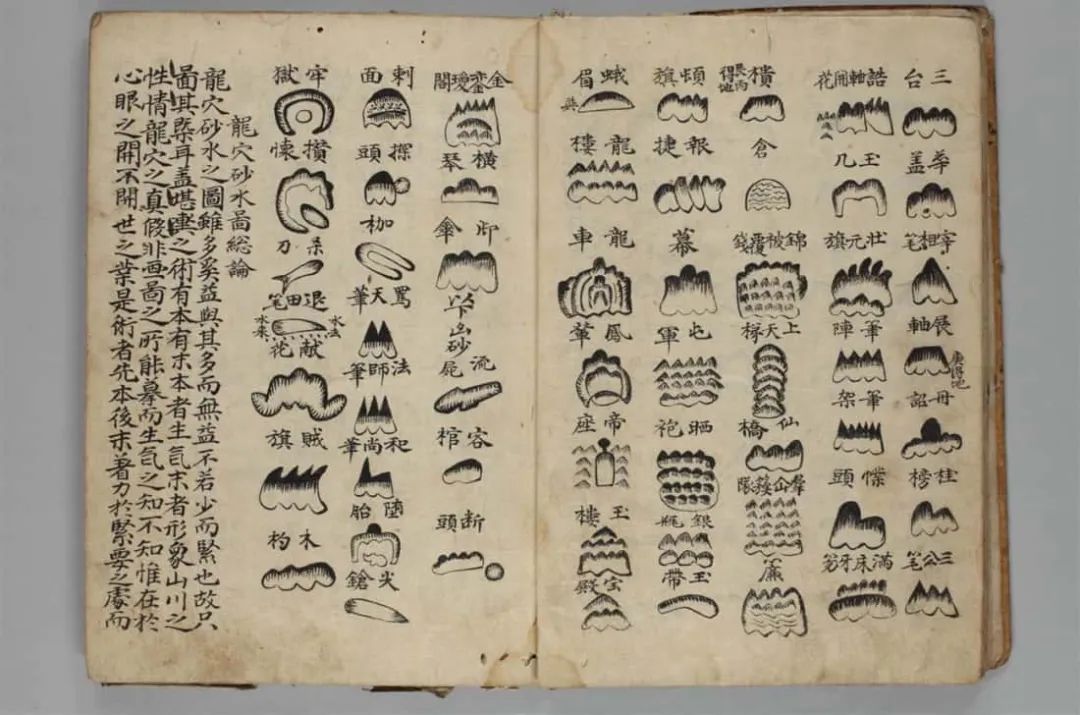 三台
華盖
宰相笔
展軸
庚得地
母詔
挂榜
三公笔
誥軸開花
玉几
壯元旗
筆陣
筆架
幞頭
滿床牙笏
樻
艮丙得地
倉
錦被覆錢
上天梯
仙橋
羣仙
簾
頓旗
報捷
幕
屯軍
晒袍
銀瓶
玉帶
蛾眉
龍樓
龍車
鳳輦
帝座
玉樓
宝殿
金鑾閣
橫琴
御傘
以下凶砂
流屍
客棺
断頭
刺面
探頭
枷
罵天筆
法師筆
和尚筆
墮胎
尖鎗
牢獄
攢懷
杀刀
退田笔
水去
水来
献花
賊旗
木杓
龍穴砂水啚総論
龍穴砂水之圖雖多奚益與其多而無益不若少而緊也故只
啚其槩耳盖堪輿之術有本有末本者生氣末者形象山川之
性情龍穴之真假非画啚之所能摹而生氣之知不知惟在於
心眼之開不開世之業是術者先本後末著力於緊要之處而